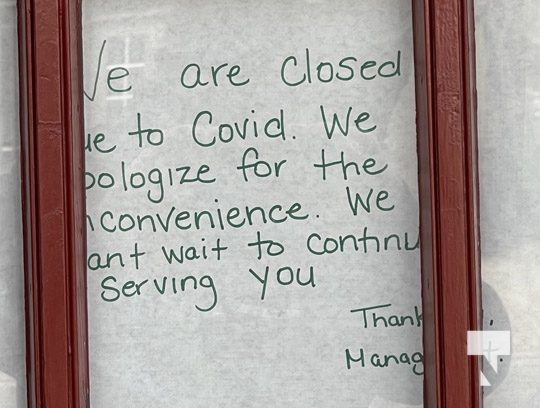 We are closed
ue to Covid. We
pologize for the
nconvenience. We
ant wait to continu
serving you
Thank
Manag